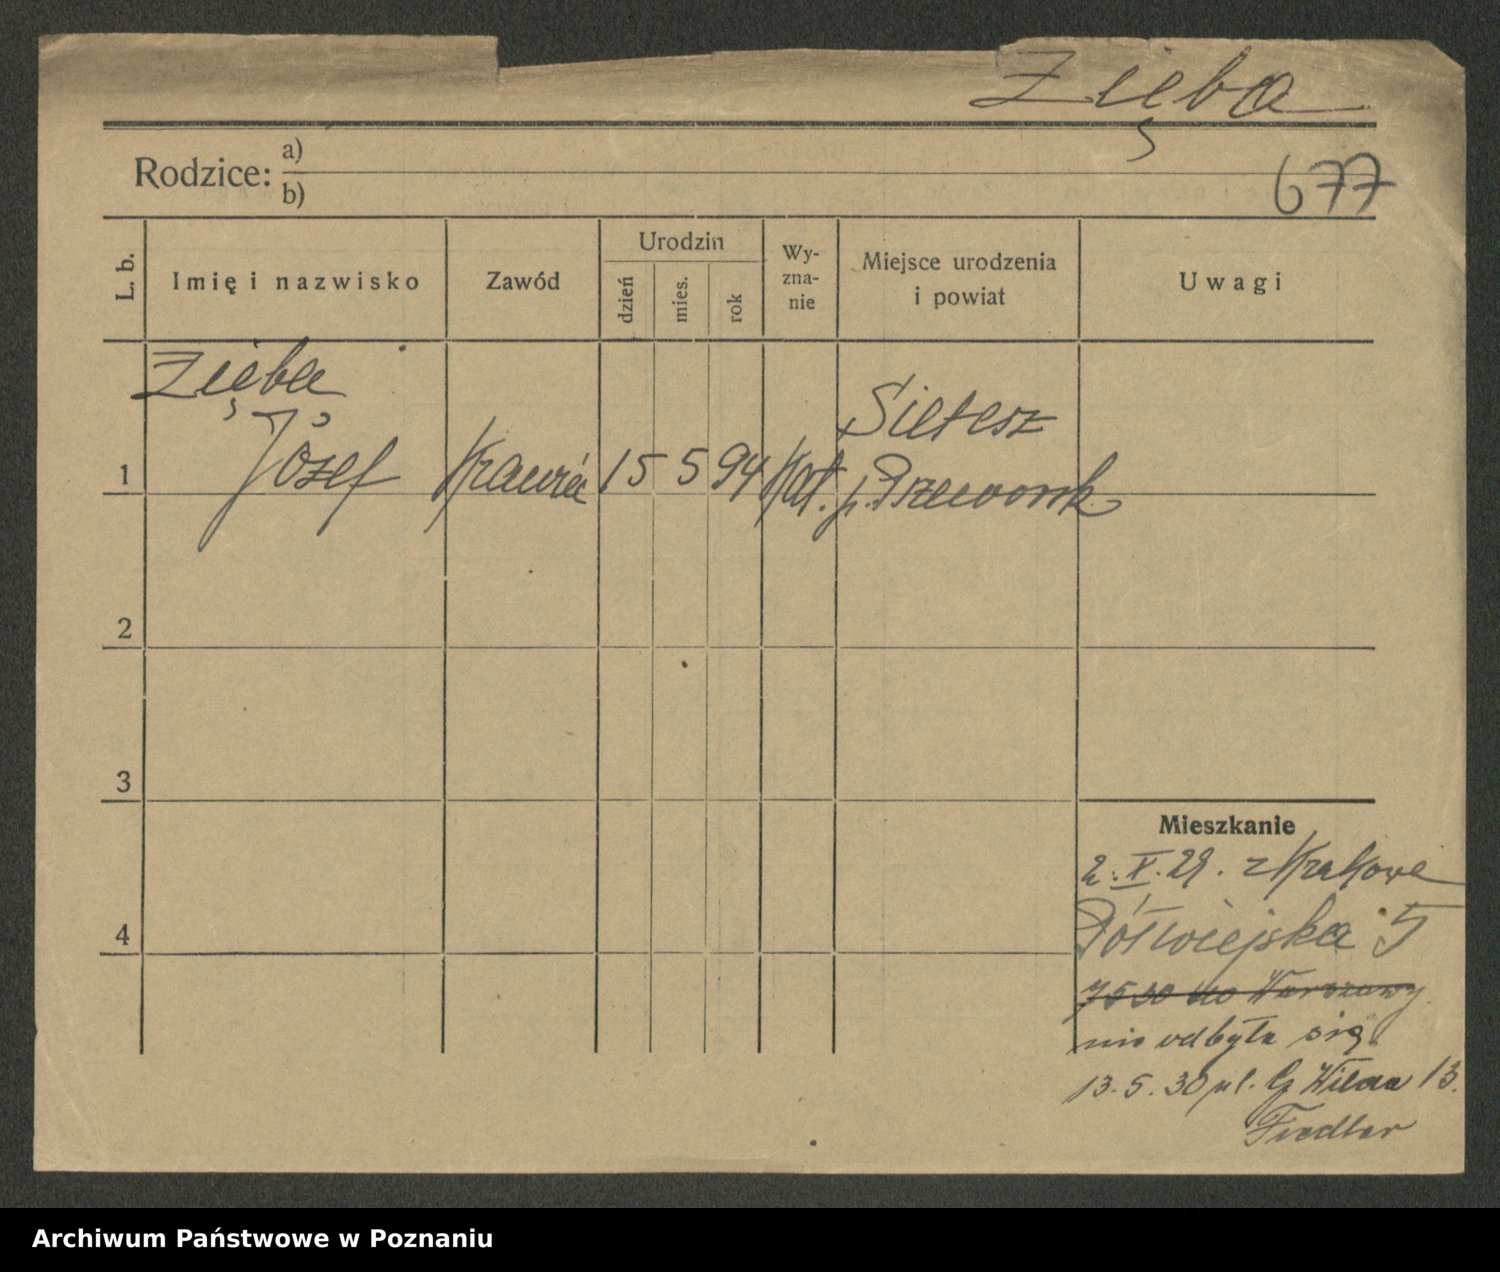 Zięba
Rodzice: a)
b)
677
L. b.
Imię i nazwisko
Zawód
Urodzin
dzień
mies.
rok
Wy-
zna-
nie
Miejsce urodzenia
i powiat
Uwagi
Zięba
1 Józef Krawiec 15 5 94 Kat. Sietesz
p. Przeworsk
2
3
4
Mieszkanie
2. X. 29. z Krakowa
Półwiejska 5
7 5 30 do Warszawy
nie odbyła się
13. 5. 30 ul. G Wilda 13.
Fiedler
Archiwum Państwowe w Poznaniu